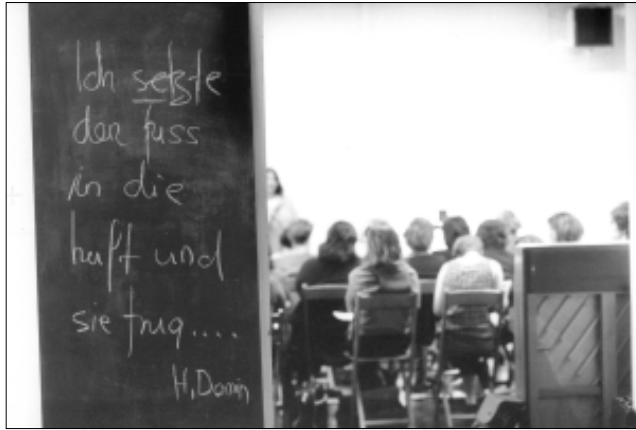 Ich setzte
den fuss
in die
luft und
sie trug....
H. Domin